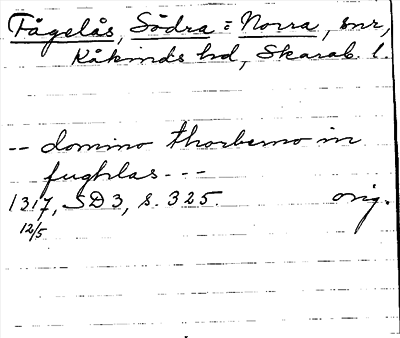 Fågelås, Södra = Norra, snr,
Kåkinds hd, Skarab. l.
-- domino thorberno in
fughlas - - -
1317, SD3, s. 325. orig.
12/5